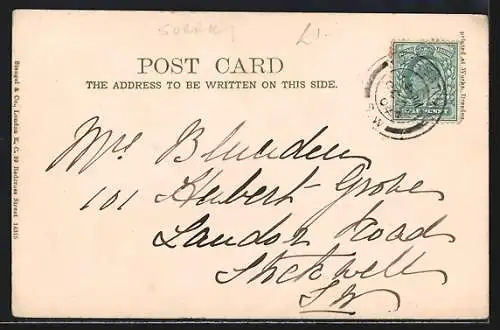 SURREY
£1-
POST CARD
THE ADDRESS TO BE WRITTEN ON THIS SIDE.
Stengel & Co., London E. C. 39 Redcross Street 14315
printed at Works, Dresden
Mrs Blunden
101 Herbert Grove
Landor Road
Stockwell
SW